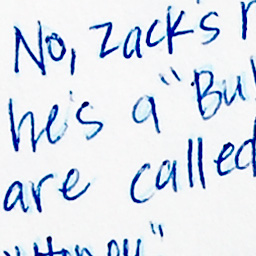 No, Zack's
he's a "Bu
are called